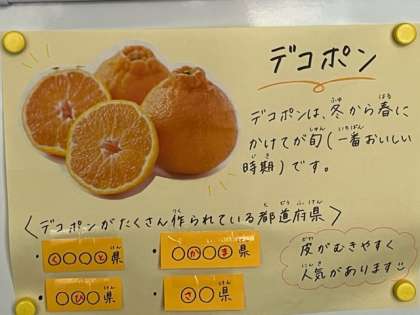 デコポン
デコポンは、冬から春に
かけてが旬(一番おいしい
時期)です。
〈デコポンがたくさん作られている都道府県〉
・く○○と県
・○か○ま県
・○ひ○県
・さ○県
皮がむきやすく
人気があります